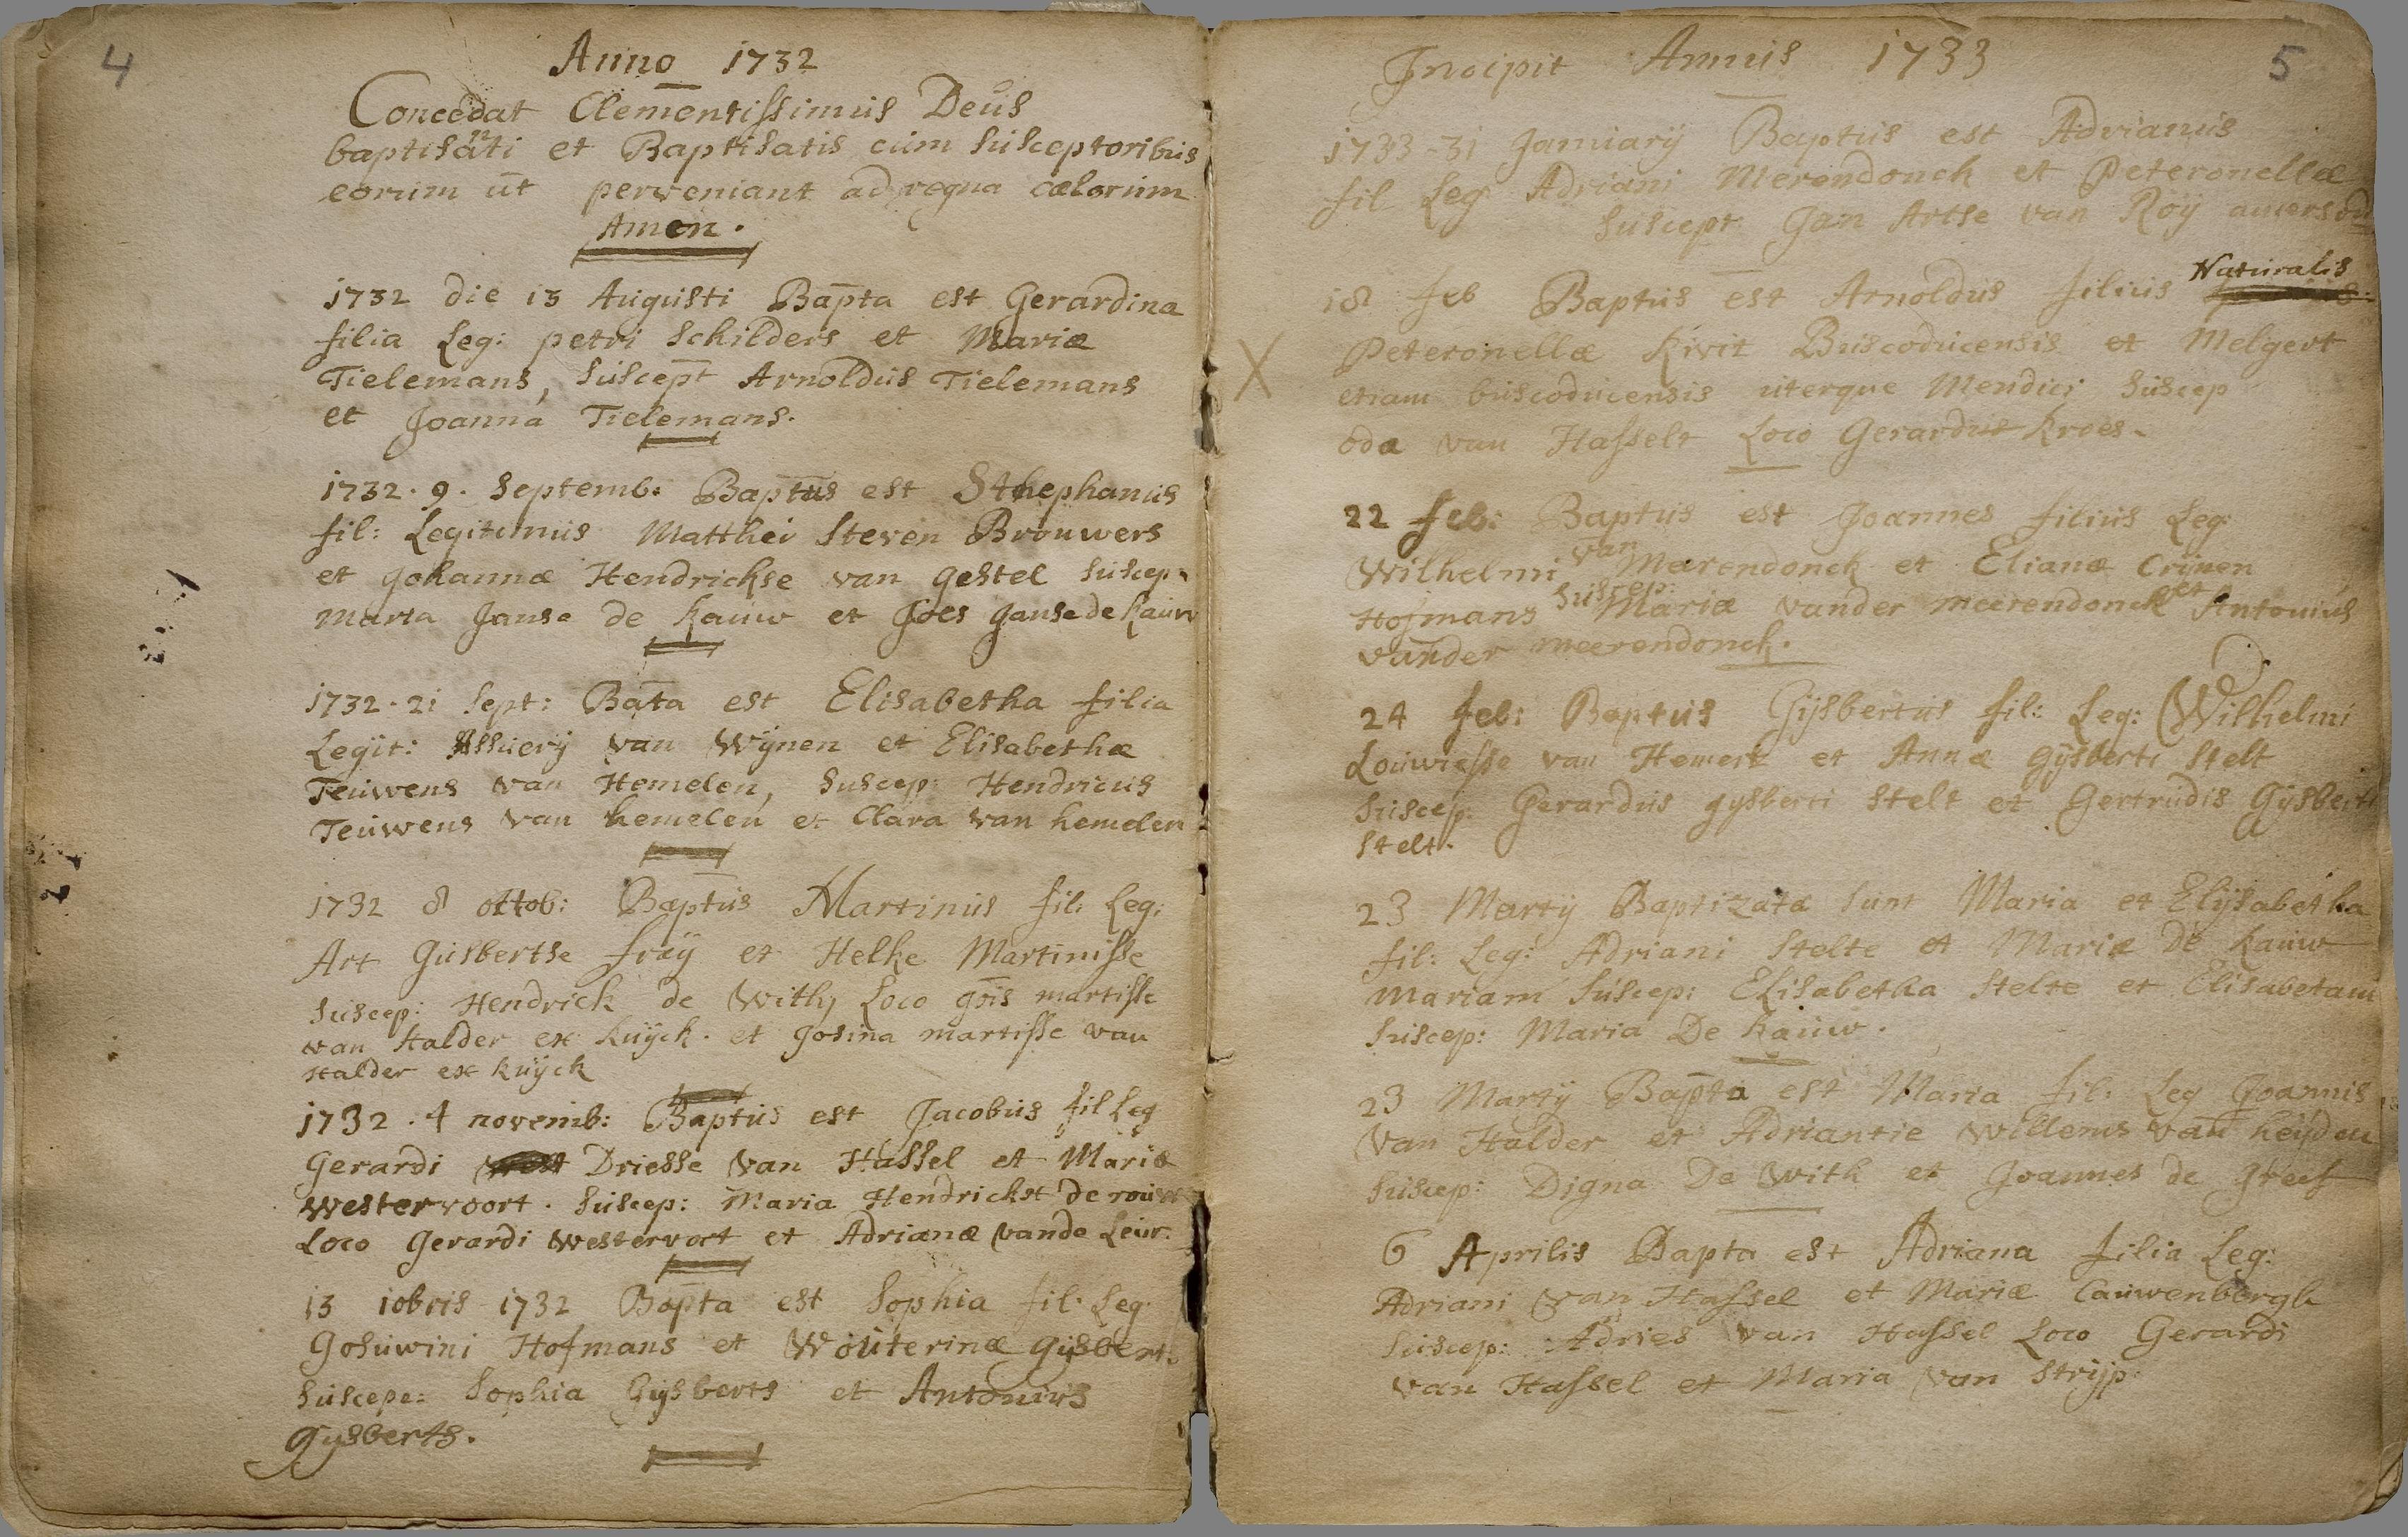 4
Anno 1732
Concedat Clementissimus Deus
baptisanti et Baptisatis cum susceptoribus
eorum ut perveniant ad regna cælorum
Amen.
1732 die 13 Augusti Bapta est Gerardina
filia Leg: petri Schilders et Mariæ
Tielemans, suscept Arnoldus Tielemans
et Joanna Tielemans.
1732 . 9 . Septemb: Baptus est Sthephanus
fil: Legitimus Matthei Steven Brouwers
et Johannæ Hendrickse van gestel suscep:
maria Janse de Kauw et Joes Janse de Kauw
1732 . 21 Sept: Bata est Elisabetha filia
Legit: Assuerÿ van Wÿnen et Elisabethæ
Teuwens van Hemelen, suscep: Hendricus
Teuwens van hemelen et Clara van hemelen
1732 8 octob: Baptus Martinus fil: Leg:
Art Gusbertse fraÿ et Helke Martinisse
suscep: Hendrick de With, Loco gris martisse
van Halder ex kuÿck . et Josina martisse van
Halder ex kuÿck
1732 . 4 novemb: Baptus est Jacobus fil Leg
Gerardi Driesse van Hassel et Mariæ
Westervoort . suscep: Maria Hendrickse de
Loco Gerardi westervort et Adrianæ vande Leur.
13 10bris 1732 Bapta est Sophia fil: Leg:
Gosuwini Hofmans et Wouterinæ gijsbert:
suscepe: Sophia Gijsberts et Antonius
Gysberts.
5
Incipit Annus 1733
1733 - 31 Januarÿ Baptus est Adrianus
fil Leg Adriani Merendonck et Peteronellæ
suscept Jan Artse van Roÿ
18 feb Baptus est Arnoldus filius Naturalis
X Peteronellæ Kivit Buscoducensis et Melgert
etiam buscoducensis uterque Mendici suscep
oda van Hasselt Loco Gerardus Kroes.
22 feb: Baptus est Joannes filius Leg:
Wilhelmi van Merendonck et Elianæ Crÿnen
Hofmans suscep: Mariæ vander meerendonck et Antonius
vander meerendonck.
24 feb: Baptus Gijsbertus fil: Leg: Wilhelmi
Louwresse van Hemert et Annæ gÿsberti Stelt
suscep: Gerardus gysberti Stelt et Gertrudis Gijsberti
Stelt.
23 Martÿ Baptizatæ sunt Maria et Elÿsabetha
fil: Leg: Adriani Stelte et Mariæ De Kauw
mariam suscep: Elisabetha Stelte et Elisabetam
suscep: Maria De Kauw.
23 Martÿ Bapta est Maria fil: Leg Joannis
van Halder et Adriantie Willems van heijden
suscep: Digna De With et Joannes de Greef
6 Aprilis Bapta est Adriana filia Leg:
Adriani van Hassel et Mariæ Cauwenbergh
suscep: Adries van Hassel Loco Gerardi
van Hassel et Maria van Strijp.